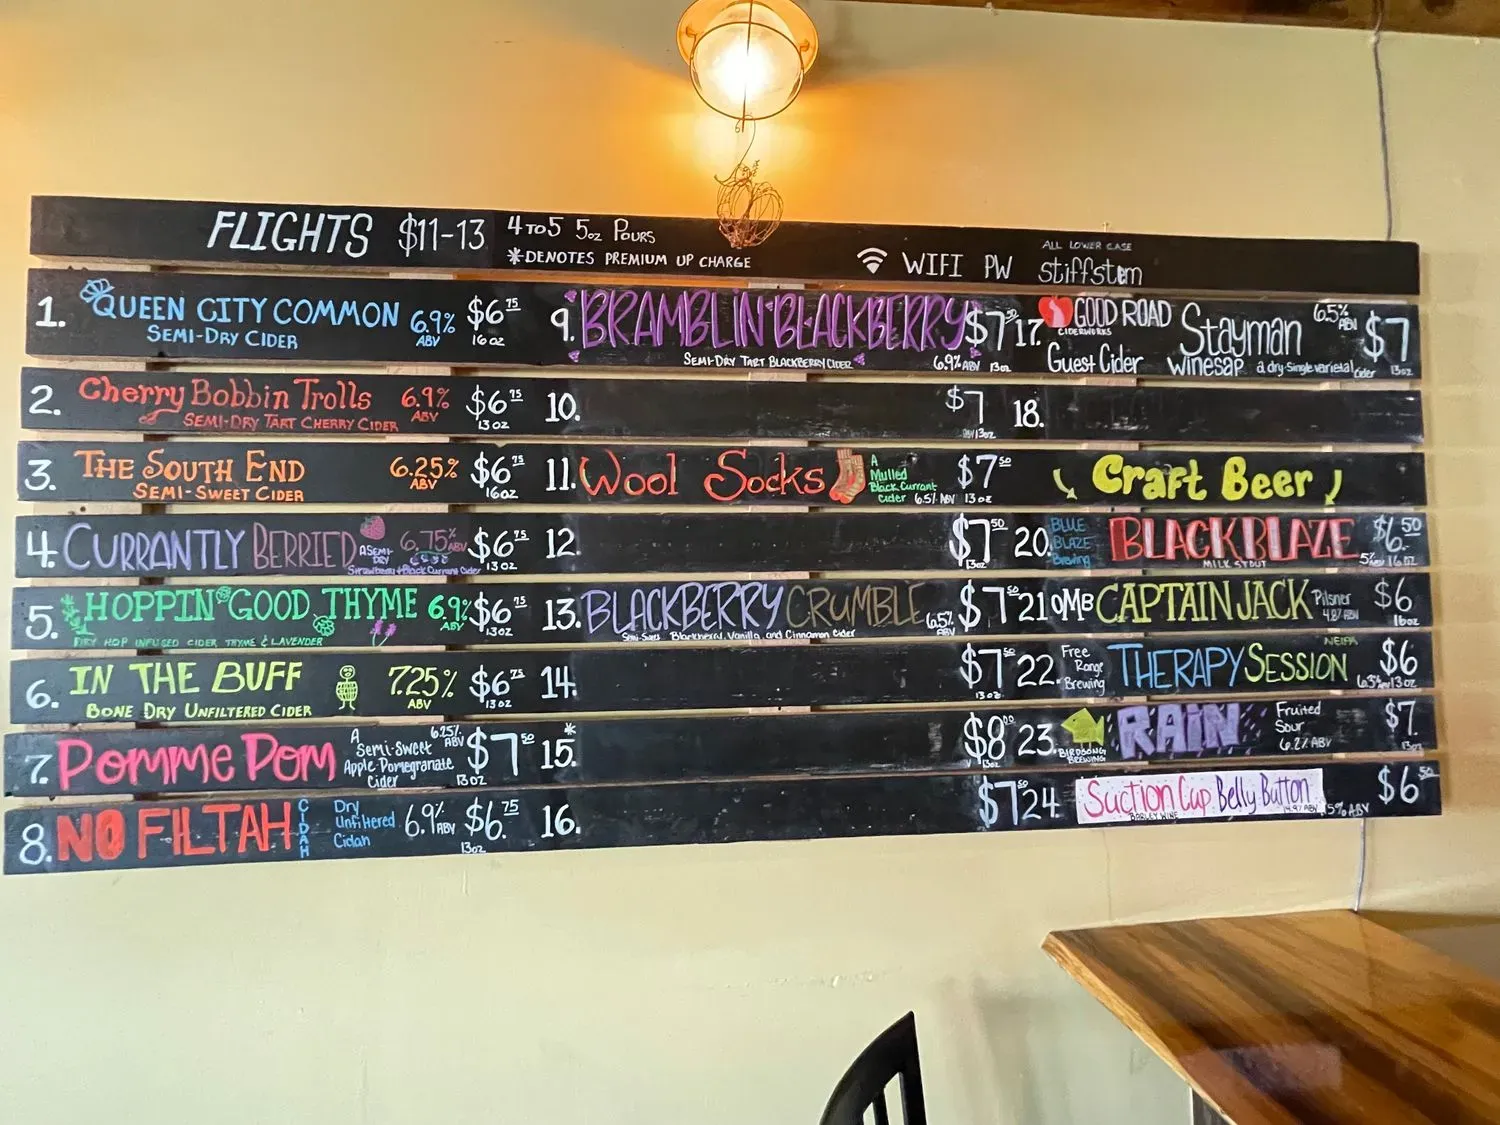 FLIGHTS $11-13 4 TO 5 5oz POURS
*DENOTES PREMIUM UP CHARGE
WIFI PW ALL LOWER CASE
stiffstem
1. QUEEN CITY COMMON 6.9% ABV $6.75 16oz
SEMI-DRY CIDER
2. Cherry Bobbin Trolls 6.9% ABV $6.75 13oz
SEMI-DRY TART CHERRY CIDER
3. THE SOUTH END 6.25% ABV $6.75 16oz
SEMI-SWEET CIDER
4. CURRANTLY BERRIED 6.75% ABV $6.75 13oz
A SEMI-DRY Strawberry + Black Currant Cider
5. HOPPIN' GOOD THYME 6.9% ABV $6.75 13oz
DRY HOP INFUSED CIDER THYME & LAVENDER
6. IN THE BUFF 7.25% ABV $6.75 13oz
BONE DRY UNFILTERED CIDER
7. POMME POM A Semi-Sweet Apple-Pomegranate Cider 6.25% ABV $7.50 13oz
8. NO FILTAH CIDAH Dry Unfiltered Cidah 6.9% ABV $6.75 13oz
9. BRAMBLIN' BLACKBERRY $7.50
SEMI-DRY TART BLACKBERRY CIDER 6.9% ABV 13oz
10. $7 ABV 13oz
11. Wool Socks A Mulled Black Currant Cider 6.5% ABV $7.50 13oz
12. $7.50 13oz
13. BLACKBERRY CRUMBLE 6.5% ABV $7.50
Semi-Sweet Blackberry, Vanilla, and Cinnamon Cider
14. $7.50 13oz
15.* $8.00 13oz
16. $7.50
17. GOOD ROAD CIDERWORKS Guest Cider Stayman Winesap 6.5% ABV $7
a dry-Single varietal Cider 13oz
18.
Craft Beer
20. BLUE BLAZE Brewing BLACK BLAZE $6.50
MILK STOUT 5% ABV 16oz
21 OMB CAPTAIN JACK Pilsner 4.8% ABV $6 16oz
22. Free Range Brewing THERAPY SESSION NEIPA $6
6.3% ABV 13oz
23. BIRDSONG BREWING RAIN Fruited Sour 6.2% ABV $7. 13oz
24. Suction Cup Belly Button $6.50
BARLEY WINE